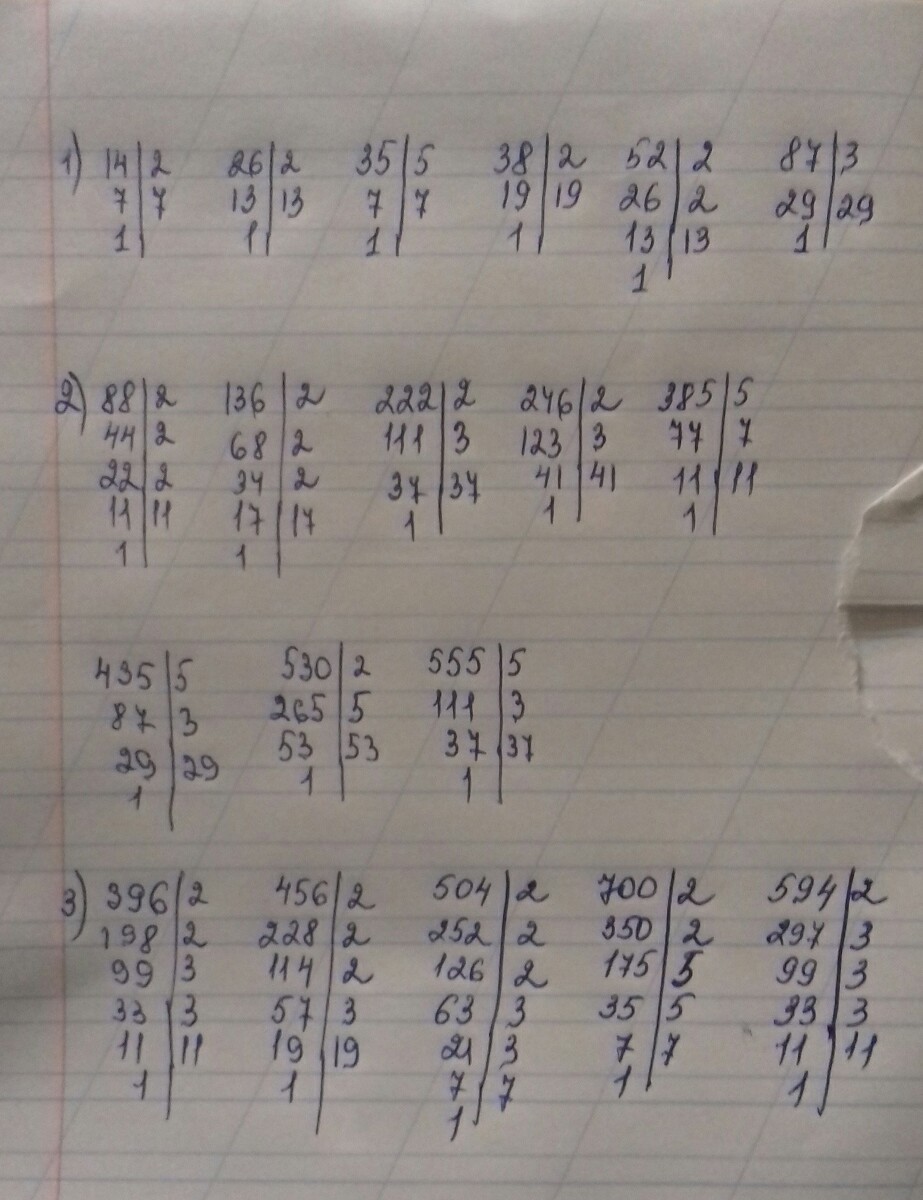 1) 14|2 26|2 35|5 38|2 52|2 87|3
7|7 13|13 7|7 19|19 26|2 29|29
1| 1| 1| 1| 13|13 1|
1|
2) 88|2 136|2 222|2 246|2 385|5
44|2 68|2 111|3 123|3 77|7
22|2 34|2 37|37 41|41 11|11
11|11 17|17 1| 1| 1|
1| 1|
435|5 530|2 555|5
87|3 265|5 111|3
29|29 53|53 37|37
1| 1| 1|
3) 396|2 456|2 504|2 700|2 594|2
198|2 228|2 252|2 350|2 297|3
99|3 114|2 126|2 175|5 99|3
33|3 57|3 63|3 35|5 33|3
11|11 19|19 21|3 7|7 11|11
1| 1| 7|7 1| 1|
1|